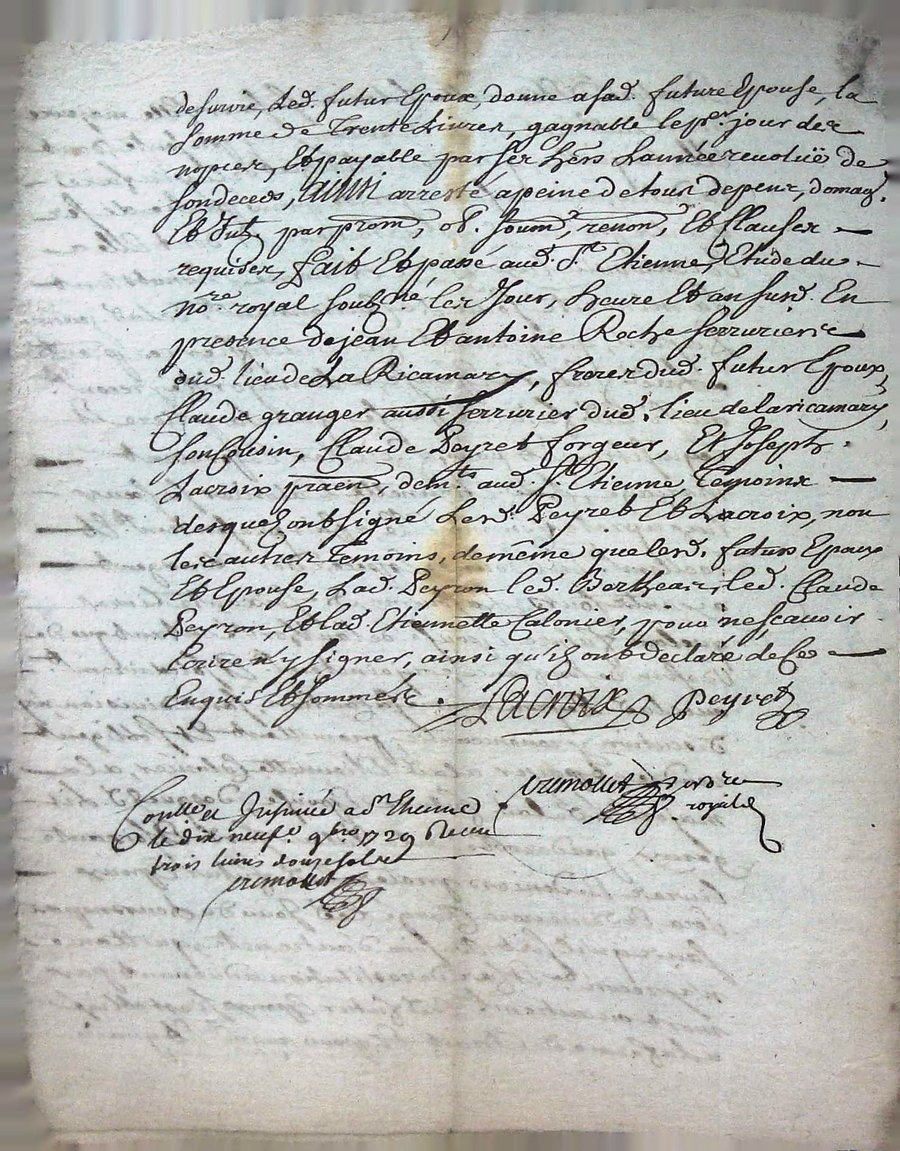 de survie, led. futur Epoux, donne a sad. future Epouse, la
somme de Trente Livres, gagnable le pr. jour des
nopces, Et payable par ses hers L'année revoluë de
son deces, ainsi arresté a peine de tous depens, domag.
Et Int. par prom, ob. soum, renon, Et Clauses
requises, fait Et passé aud. St. Etienne, Etude du
nre. royal soubné. les Jour, heure Et an susd. En
presence de jean Et antoine Roche serruriers
dud. lieu de La Ricamary, freres dud. futur Epoux,
Claude granger aussi serrurier dud. lieu de la ricamary,
son Cousin, Claude Peyret forgeur, Et Joseph
Lacroix praen, demts. aud. St. Etienne Témoins
desquels ont signé Lesd. Peyret Et Lacroix, non
les autres Temoins, de même que lesd. futurs Epoux
Et Epouse, Lad. Peyron led. Berthear, led. Claude
Peyron, Et lad. Etiennette Calonier, pour ne sçavoir
Ecrire n'y signer, ainsi qu'ils ont declaré de Ce
Enquis Et sommés. Lacroix Peyret
royal
Conllé et Insinué a St. Etienne
le dix neufe. 9bre 1729 Receu
trois livres douze sols